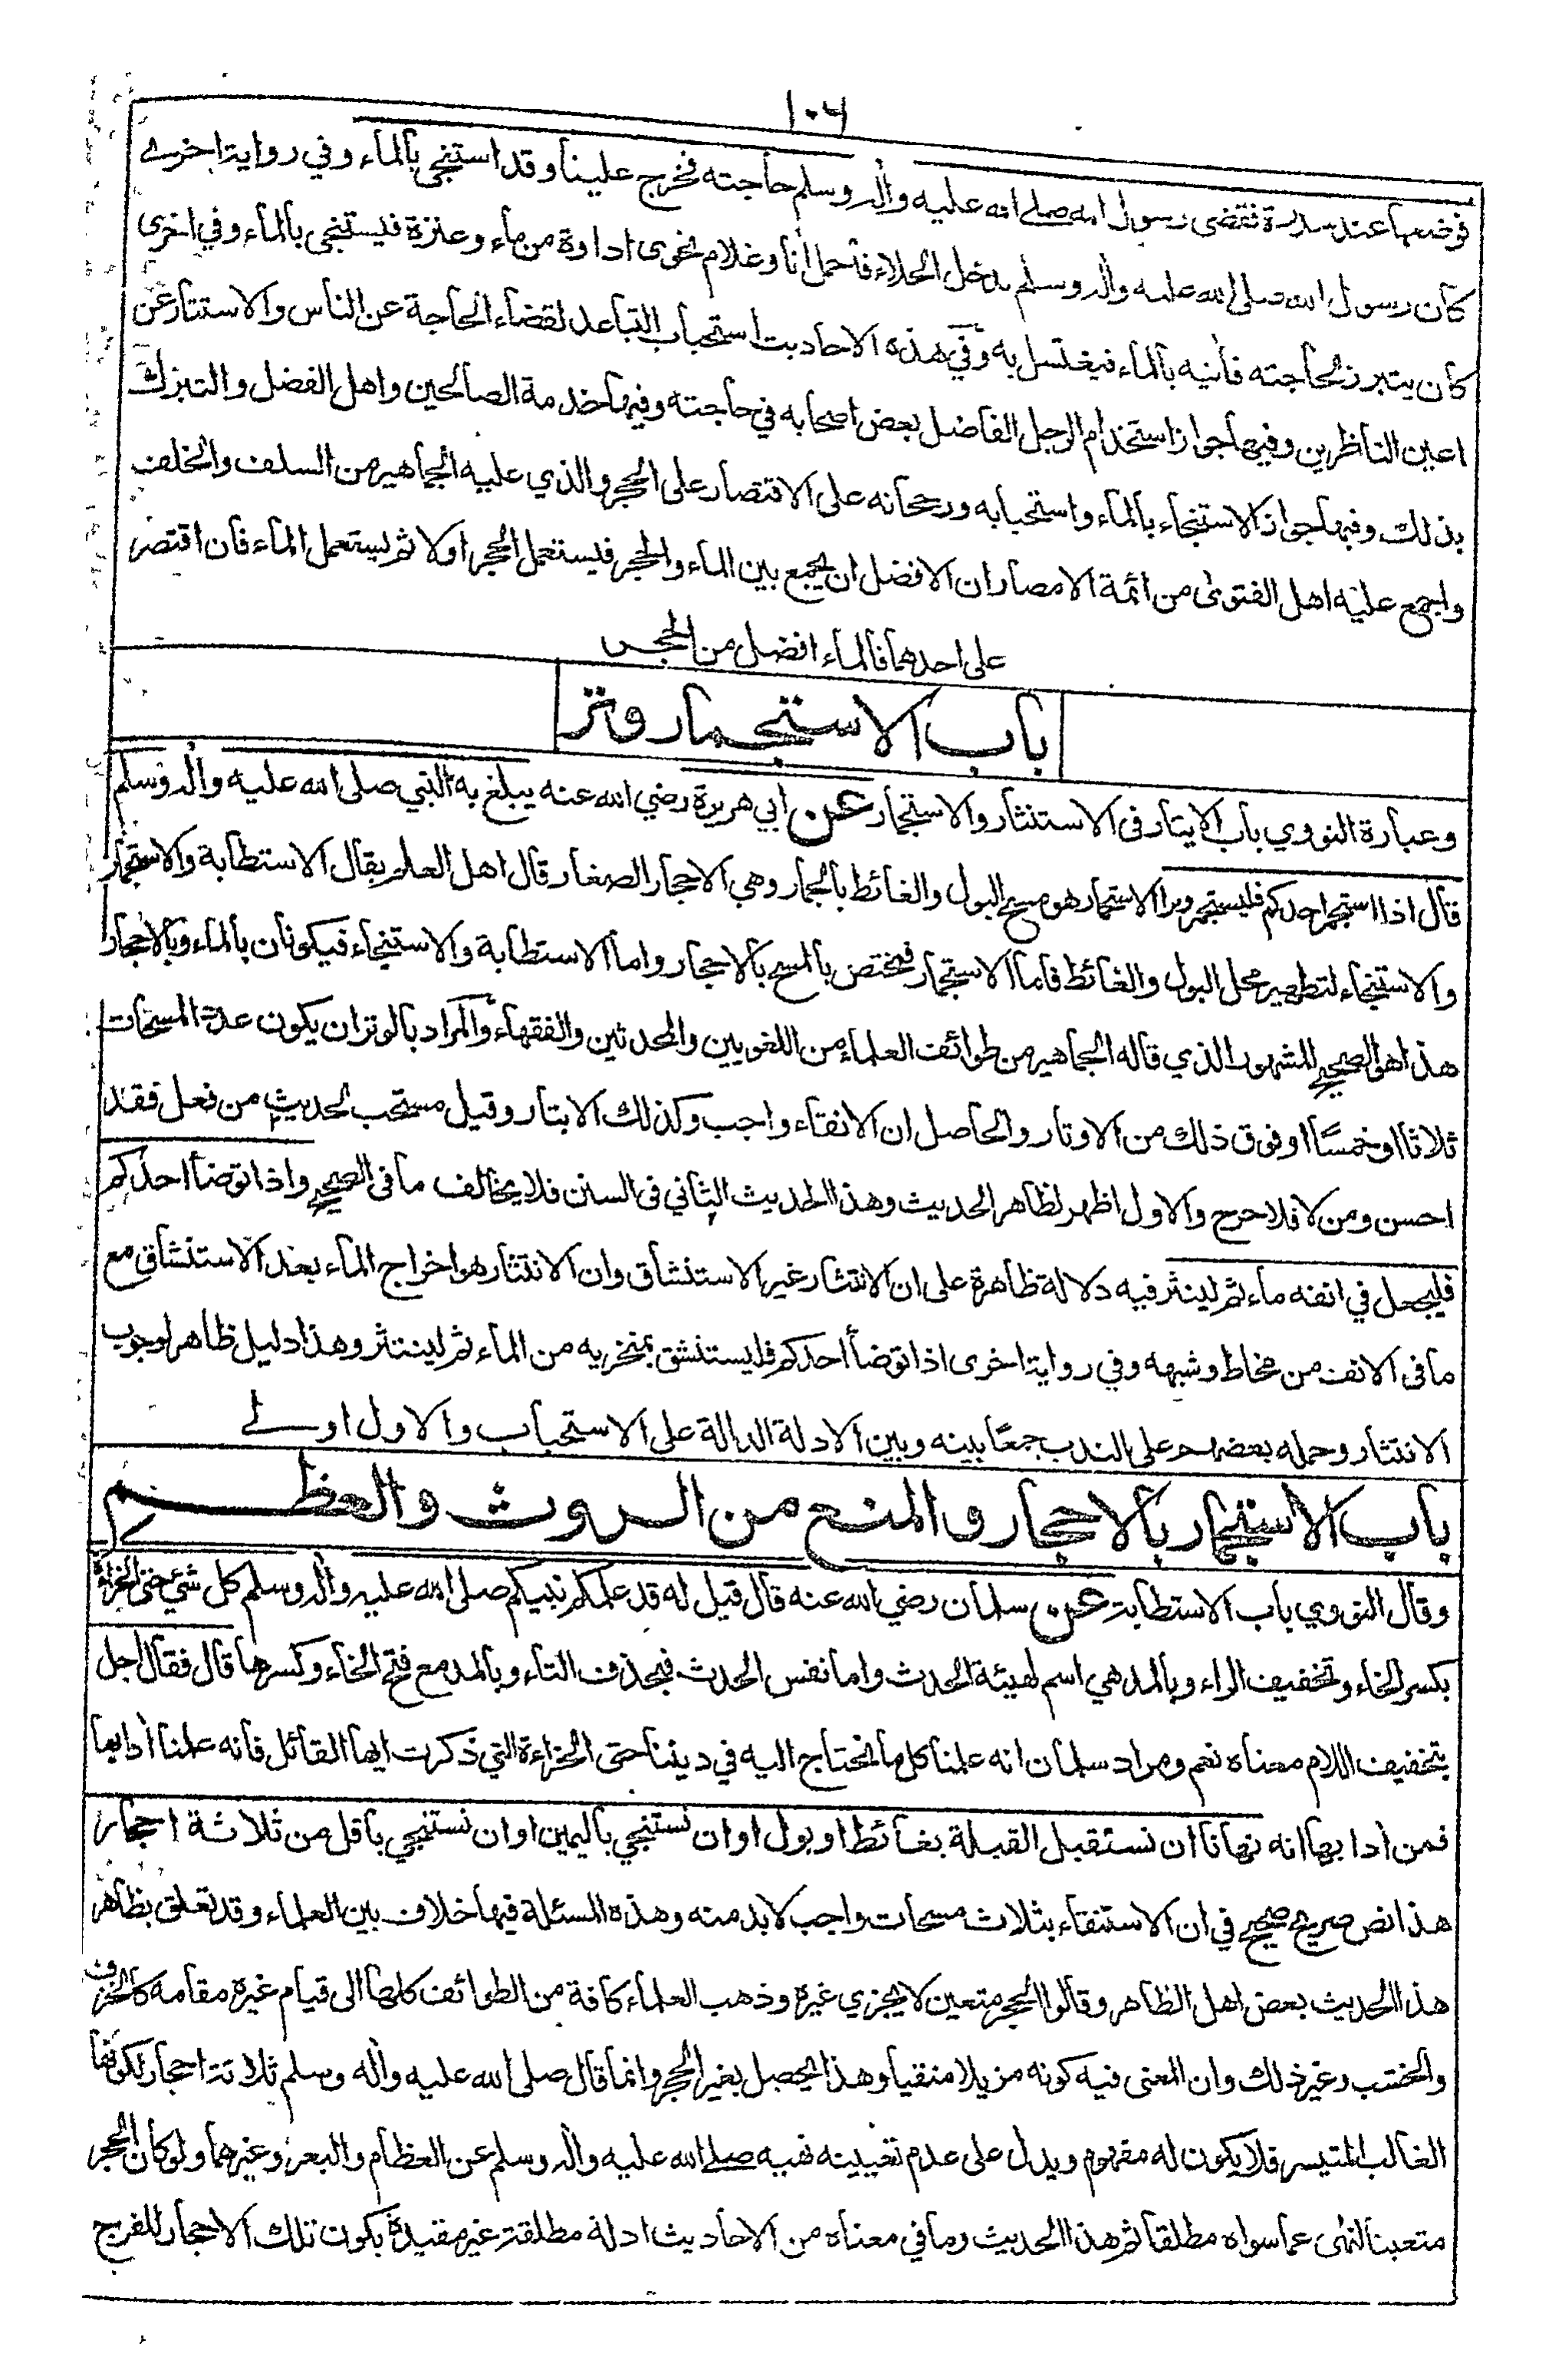 ١٠٦
فوضعها عند سدرة فقضى رسول الله صلى الله عليه واله وسلم حاجته فخرج علينا وقد استنجى بالماء وفي رواية اخرى
كان رسول الله صلى الله عليه واله وسلم يدخل الخلاء فاحمل انا وغلام نحوى اداوة من ماء وعنزة فيستنجى بالماء وفي اخرى
كان يتبرز لحاجته فاتيه بالماء فيغتسل به وفي هذه الاحاديث استحباب التباعد لقضاء الحاجة عن الناس والاستتار عن
اعين الناظرين وفيها جواز استخدام الرجل الفاضل بعض اصحابه في حاجته وفيها خدمة الصالحين واهل الفضل والتبرك
بذلك وفيها جواز الاستنجاء بالماء واستحبابه ورجحانه على الاقتصار على الحجر والذي عليه الجماهير من السلف والخلف
واجمع عليه اهل الفتوى من ائمة الامصار ان الافضل ان يجمع بين الماء والحجر فيستعمل الحجر اولا ثم يستعمل الماء فان اقتصر
على احدهما فالماء افضل من الحجر
باب الاستجمار وتر
وعبارة النووي باب الايتار فى الاستنثار والاستجمار عن ابي هريرة رضي الله عنه يبلغ به النبي صلى الله عليه واله وسلم
قال اذا استجمر احدكم فليستجمر وترا الاستجمار هو مسح البول والغائط بالجمار وهي الاحجار الصغار قال اهل العلم يقال الاستطابة والاستجمار
والاستنجاء لتطهير محل البول والغائط فاما الاستجمار فيختص بالمسح بالاحجار واما الاستطابة والاستنجاء فيكونان بالماء وبالاحجار
هذا هو الصحيح المشهور الذي قاله الجماهير من طوائف العلماء من اللغويين والمحدثين والفقهاء والمراد بالوتر ان يكون عدة المسحات
ثلاثا او خمسًا او فوق ذلك من الاوتار والحاصل ان الانقاء واجب وكذلك الايتار وقيل مستحب لحديث من فعل فقد
احسن ومن لا فلا حرج والاول اظهر لظاهر الحديث وهذا الحديث الثاني فى السنن فلا يخالف ما فى الصحيح واذا توضأ احدكم
فليجعل في انفه ماء ثم لينثر فيه دلالة ظاهرة على ان الانتثار غير الاستنشاق وان الانتثار هو اخراج الماء بعد الاستنشاق مع
ما فى الانف من مخاط وشبهه وفي رواية اخرى اذا توضأ احدكم فليستنشق بمنخريه من الماء ثم لينتثر وهذا دليل ظاهر لوجوب
الانتثار وحمله بعضهم على الندب جمعًا بينه وبين الادلة الدالة على الاستحباب والاول اولے
باب الاستجمار بالاحجار والمنع من الروث والعظم
وقال النووي باب الاستطابة عن سلمان رضي الله عنه قال قيل له قد علمكم نبيكم صلى الله عليه واله وسلم كل شئ حتى الخراءة
بكسر الخاء وتخفيف الراء وبالمد هي اسم لهيئة الحدث واما نفس الحدث فبحذف التاء وبالمد مع فتح الخاء وكسرها قال فقال اجل
بتخفيف اللام معناه نعم ومراد سلمان انه علمنا كل ما نحتاج اليه في ديننا حتى الخراءة التي ذكرت ايها القائل فانه علمنا ادابها
فمن ادابها انه نهانا ان نستقبل القبلة بغائط او بول او ان نستنجي باليمين او ان نستنجي باقل من ثلاثة احجار
هذا نص صريح صحيح في ان الاستنقاء بثلاث مسحات واجب لا بد منه وهذه المسئلة فيها خلاف بين العلماء وقد تعلق بظاهر
هذا الحديث بعض اهل الظاهر وقالوا الحجر متعين لا يجزي غيره وذهب العلماء كافة من الطوائف كلها الى قيام غيره مقامه كالخزف
والخشب وغير ذلك وان المعنى فيه كونه مزيلا منقيا وهذا يحصل بغير الحجر وانما قال صلى الله عليه واله وسلم ثلاثة احجار لكونها
الغالب المتيسر فلا يكون له مفهوم ويدل على عدم تعيينه نهيه صلى الله عليه واله وسلم عن العظام والبعر وغيرهما ولو كان الحجر
متعينا لنهى عما سواه مطلقا ثم هذا الحديث وما في معناه من الاحاديث ادلة مطلقة غير مقيدة بكون تلك الاحجار للفرج